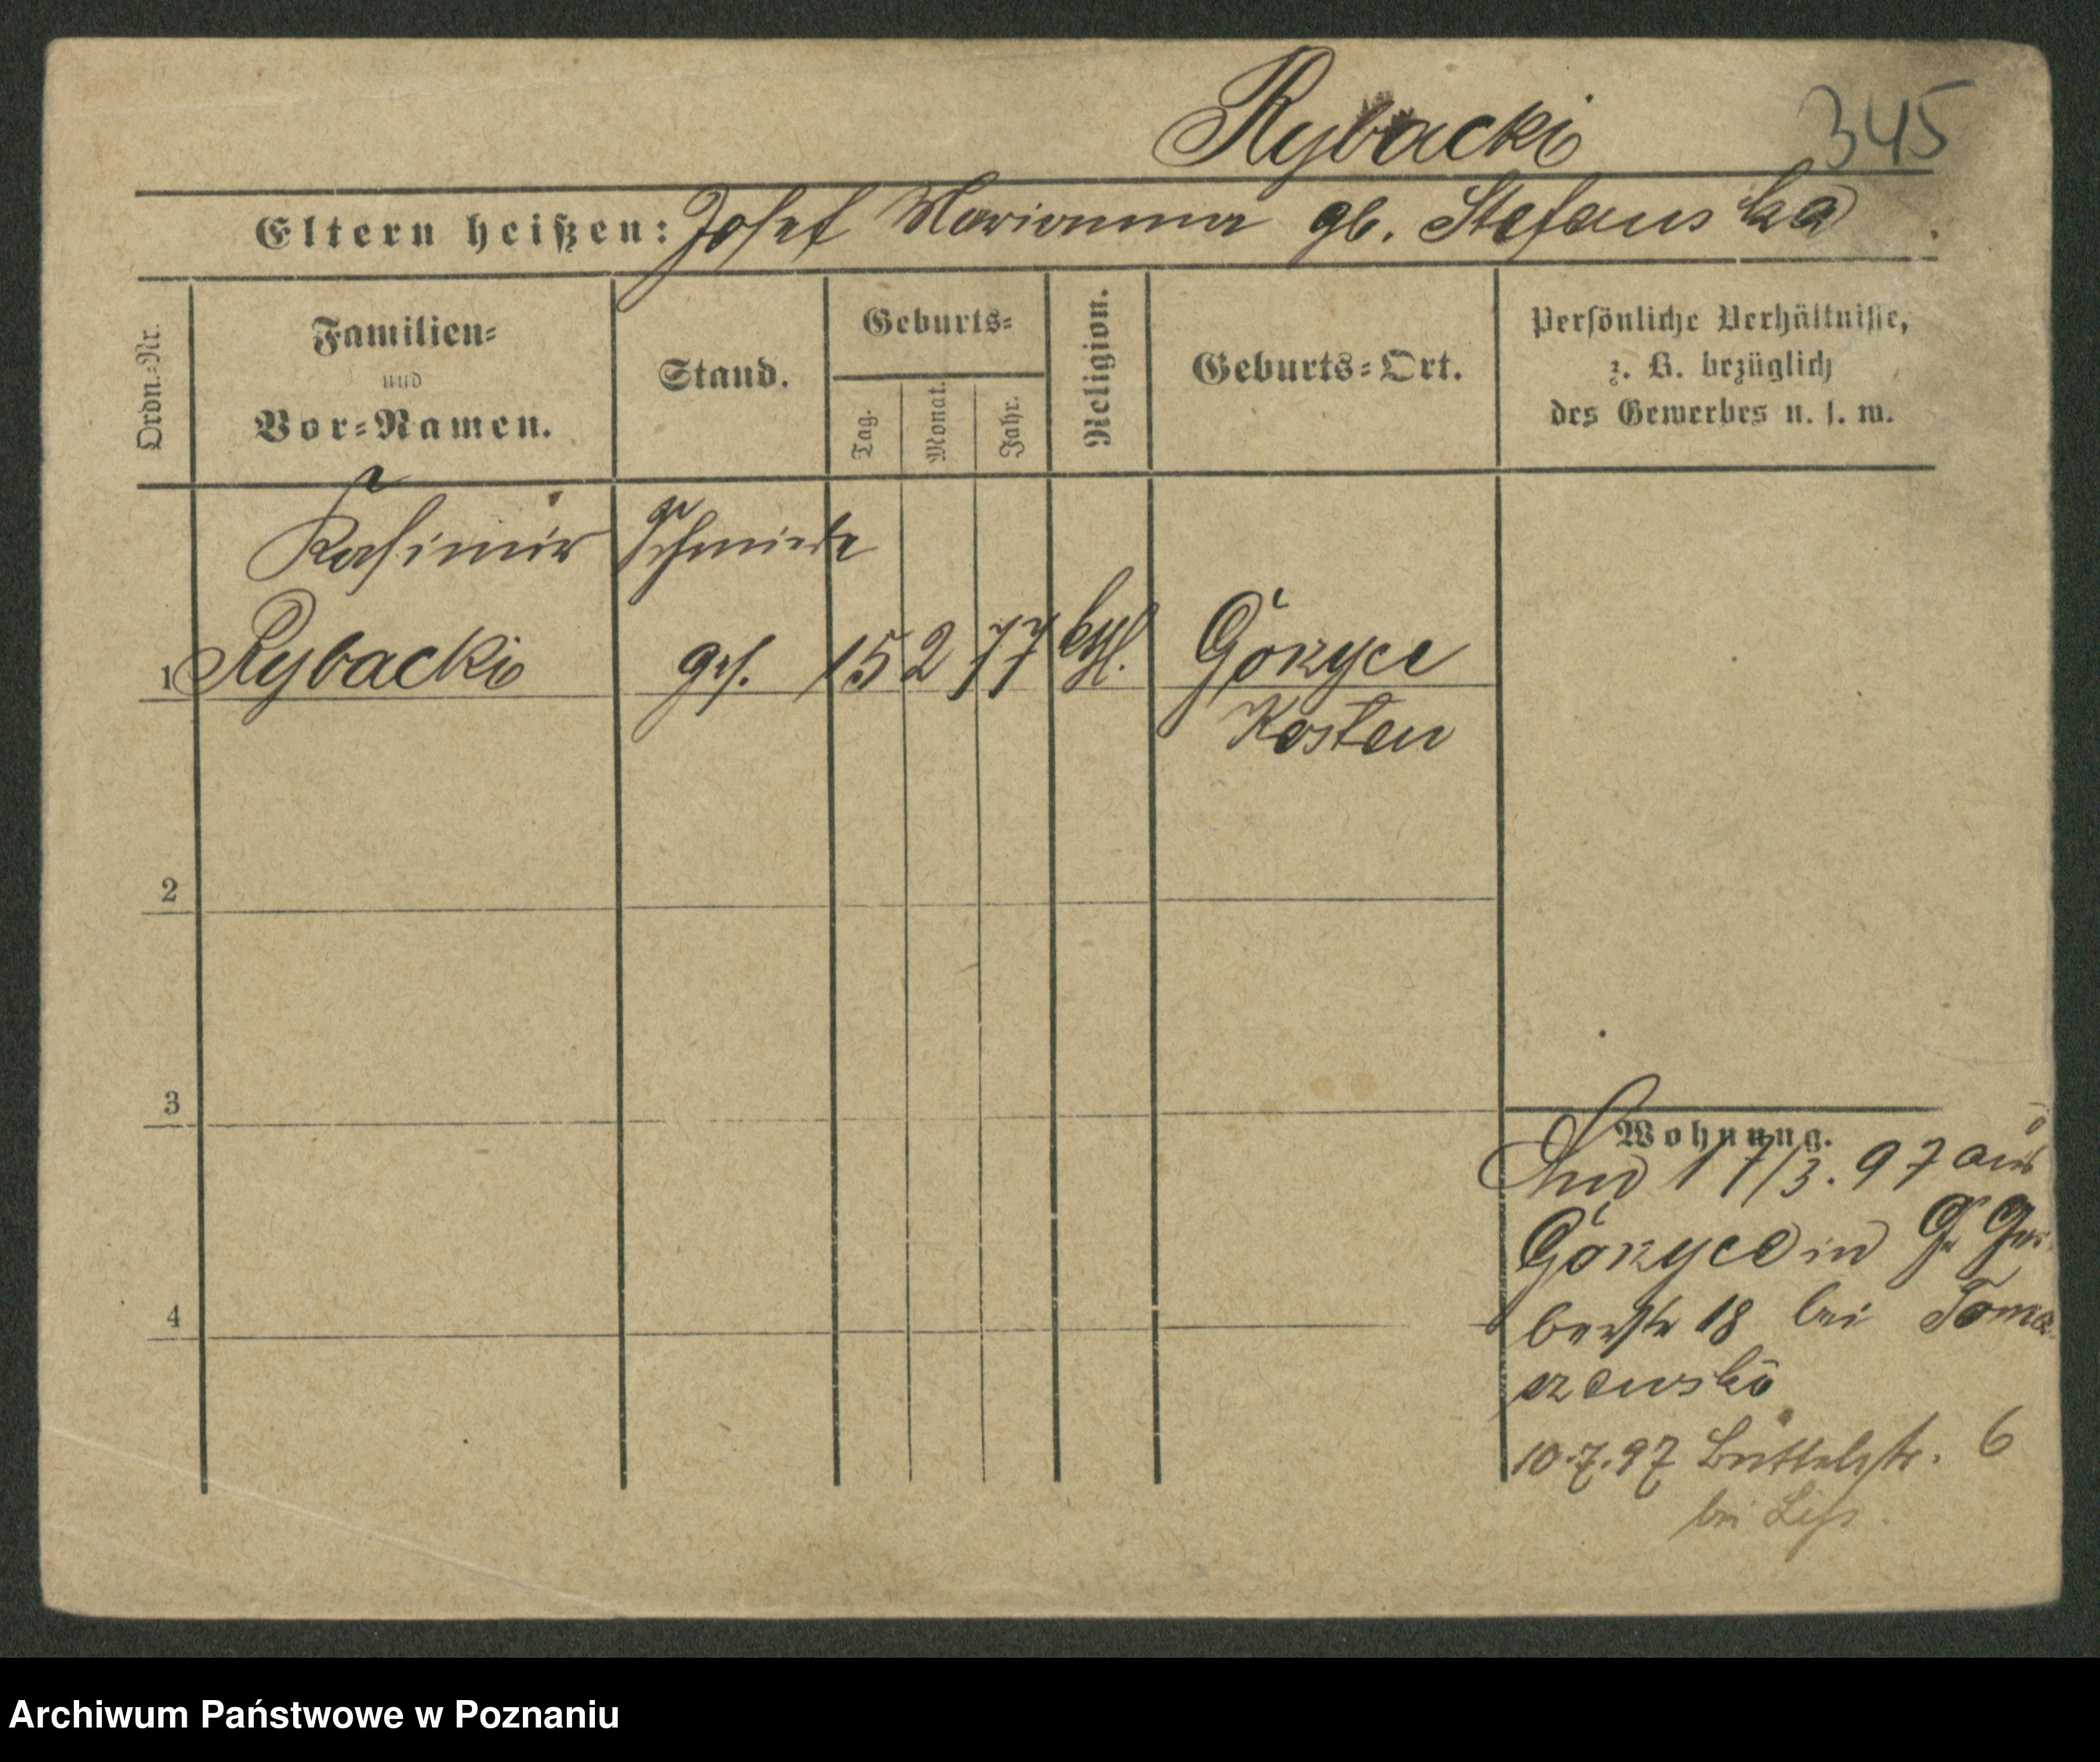 Rybacki 345
Eltern heißen: Josef Marianna gb. Stefanska
Ordn.-Nr.
Familien-
und
Vor-Namen.
Stand.
Geburts-
Tag.
Monat.
Jahr.
Religion.
Geburts-Ort.
Persönliche Verhältnisse,
z. B. bezüglich
des Gewerbes u. s. w.
Kasimir Schmiede
1 Rybacki ges. 15 2 77 ktl. Górzyce
Kosten
2
3
4
Wohnung.
17/3. 97 aus
Górzyce in Gr Ger-
berstr 18 bei Toma-
szewski
10.7.97 Büttelstr. 6
bei
Archiwum Państwowe w Poznaniu